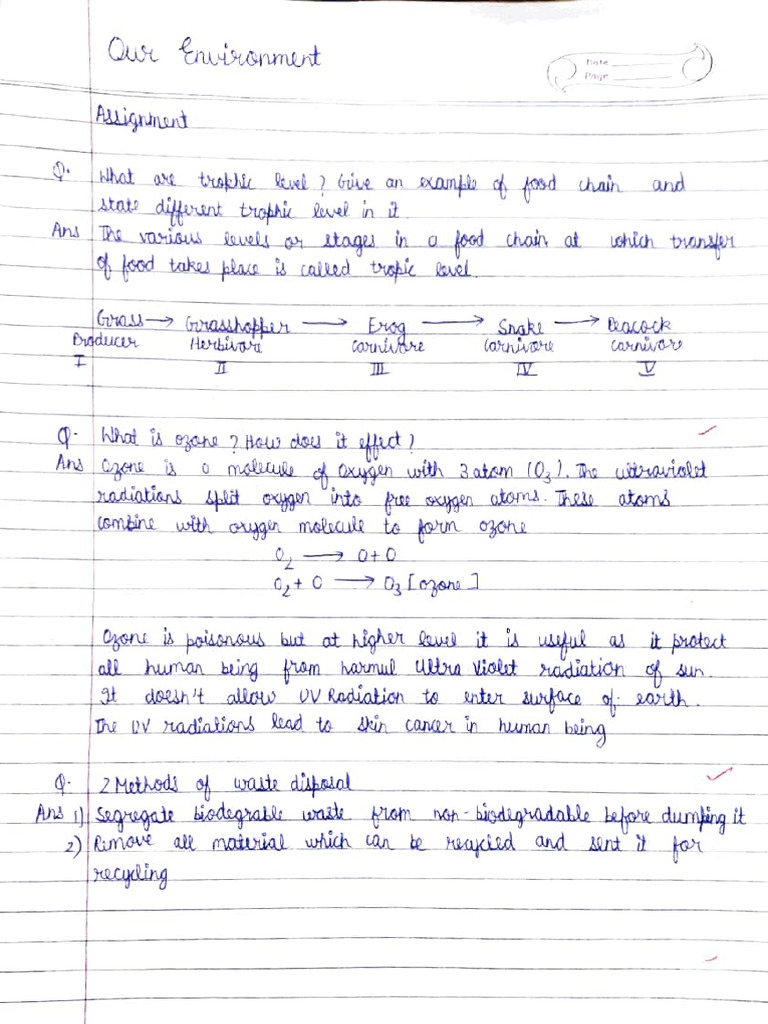 Our Environment
Date
Page
Assignment
Q. What are trophic level? Give an example of food chain and
state different trophic level in it.
Ans The various levels or stages in a food chain at which transfer
of food takes place is called tropic level.
Grass → Grasshopper → Frog → Snake → Peacock
Producer Herbivore Carnivore Carnivore Carnivore
I II III IV V
Q. What is ozone? How does it effect?
Ans Ozone is a molecule of oxygen with 3 atom (O3). The ultraviolet
radiations split oxygen into free oxygen atoms. These atoms
combine with oxygen molecule to form ozone
O2 → O + O
O2 + O → O3 [ozone]
Ozone is poisonous but at higher level it is useful as it protect
all human being from harmul Ultra Violet radiation of sun.
It doesn't allow UV Radiation to enter surface of earth.
The UV radiations lead to skin cancer in human being
Q. 2 Methods of waste disposal
Ans 1) Segregate biodegrable waste from non-biodegradable before dumping it
2) Remove all material which can be recycled and sent it for
recycling